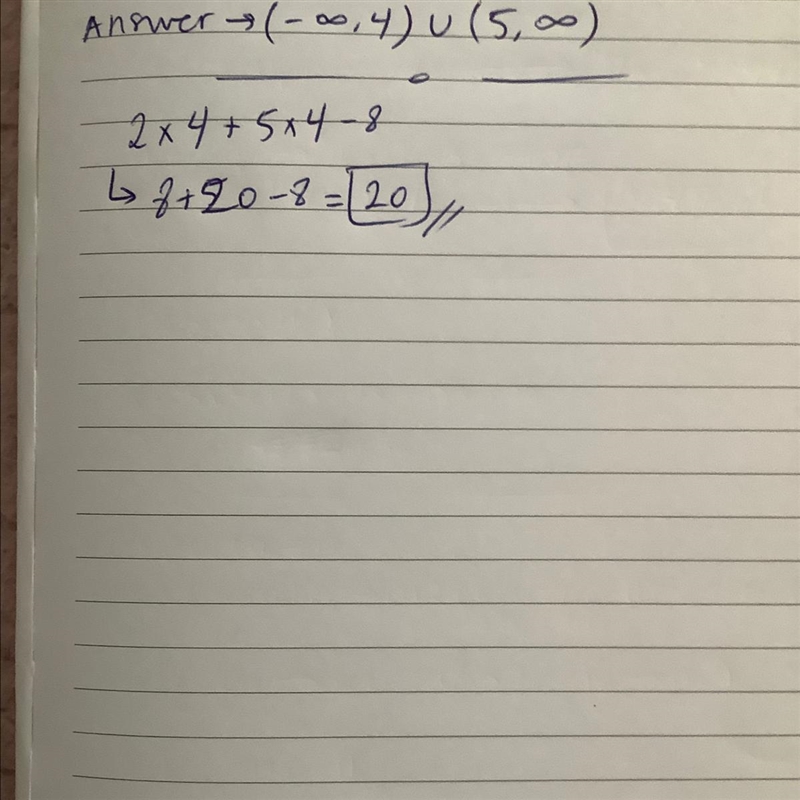 Answer → (-∞, 4) ∪ (5, ∞)
2 × 4 + 5 × 4 - 8
↳ 8 + 20 - 8 = 20 //